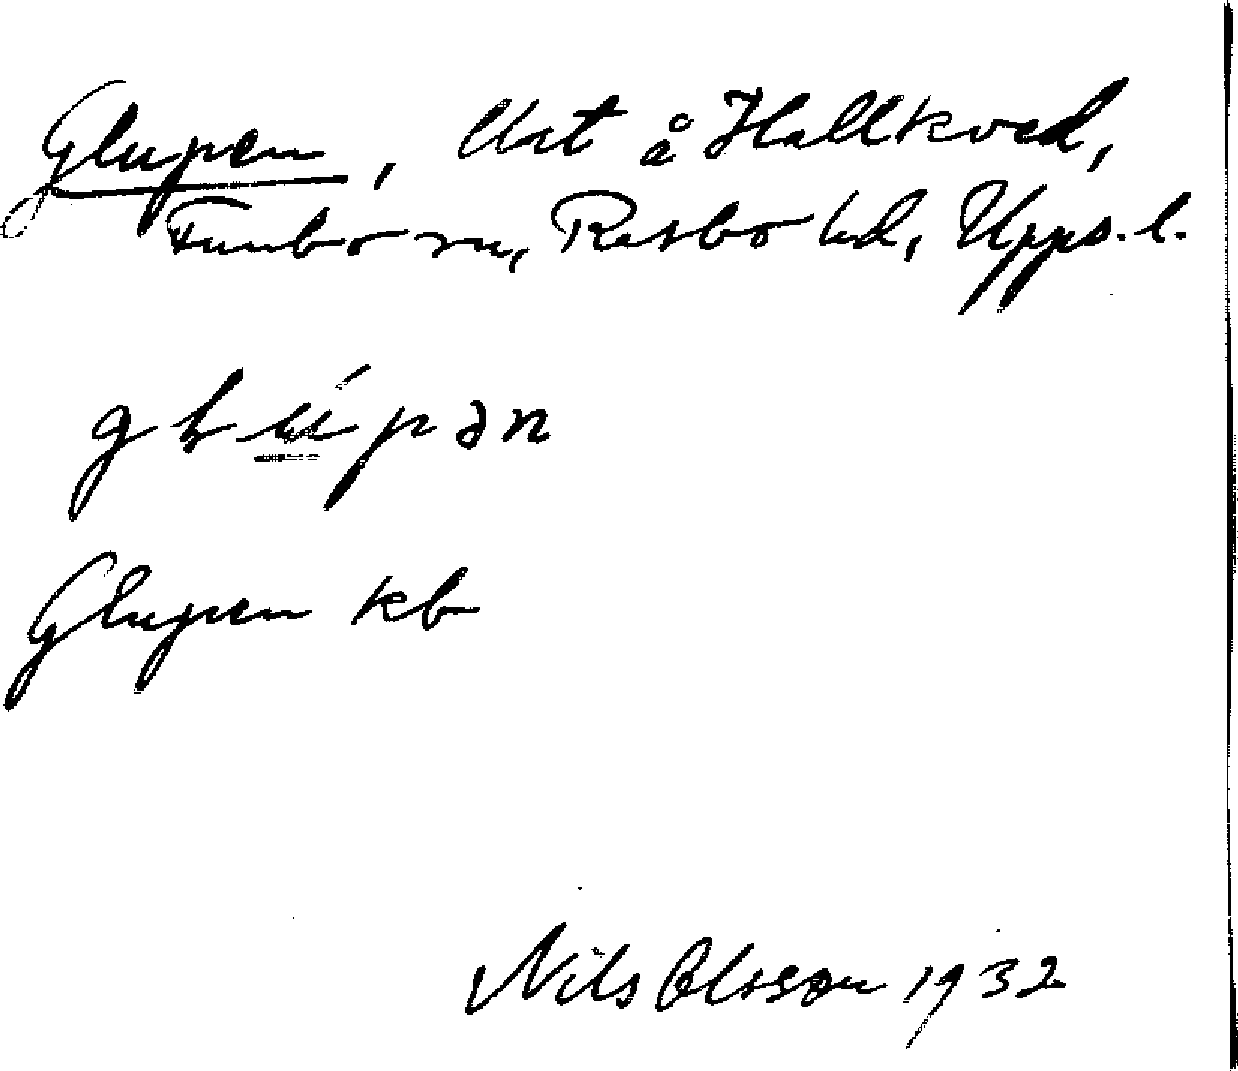 Glupen, Utst å Hallkved,
Funbo sn, Rasbo hd, Upps. l.
Glupen kb
Nils Olsson 1932